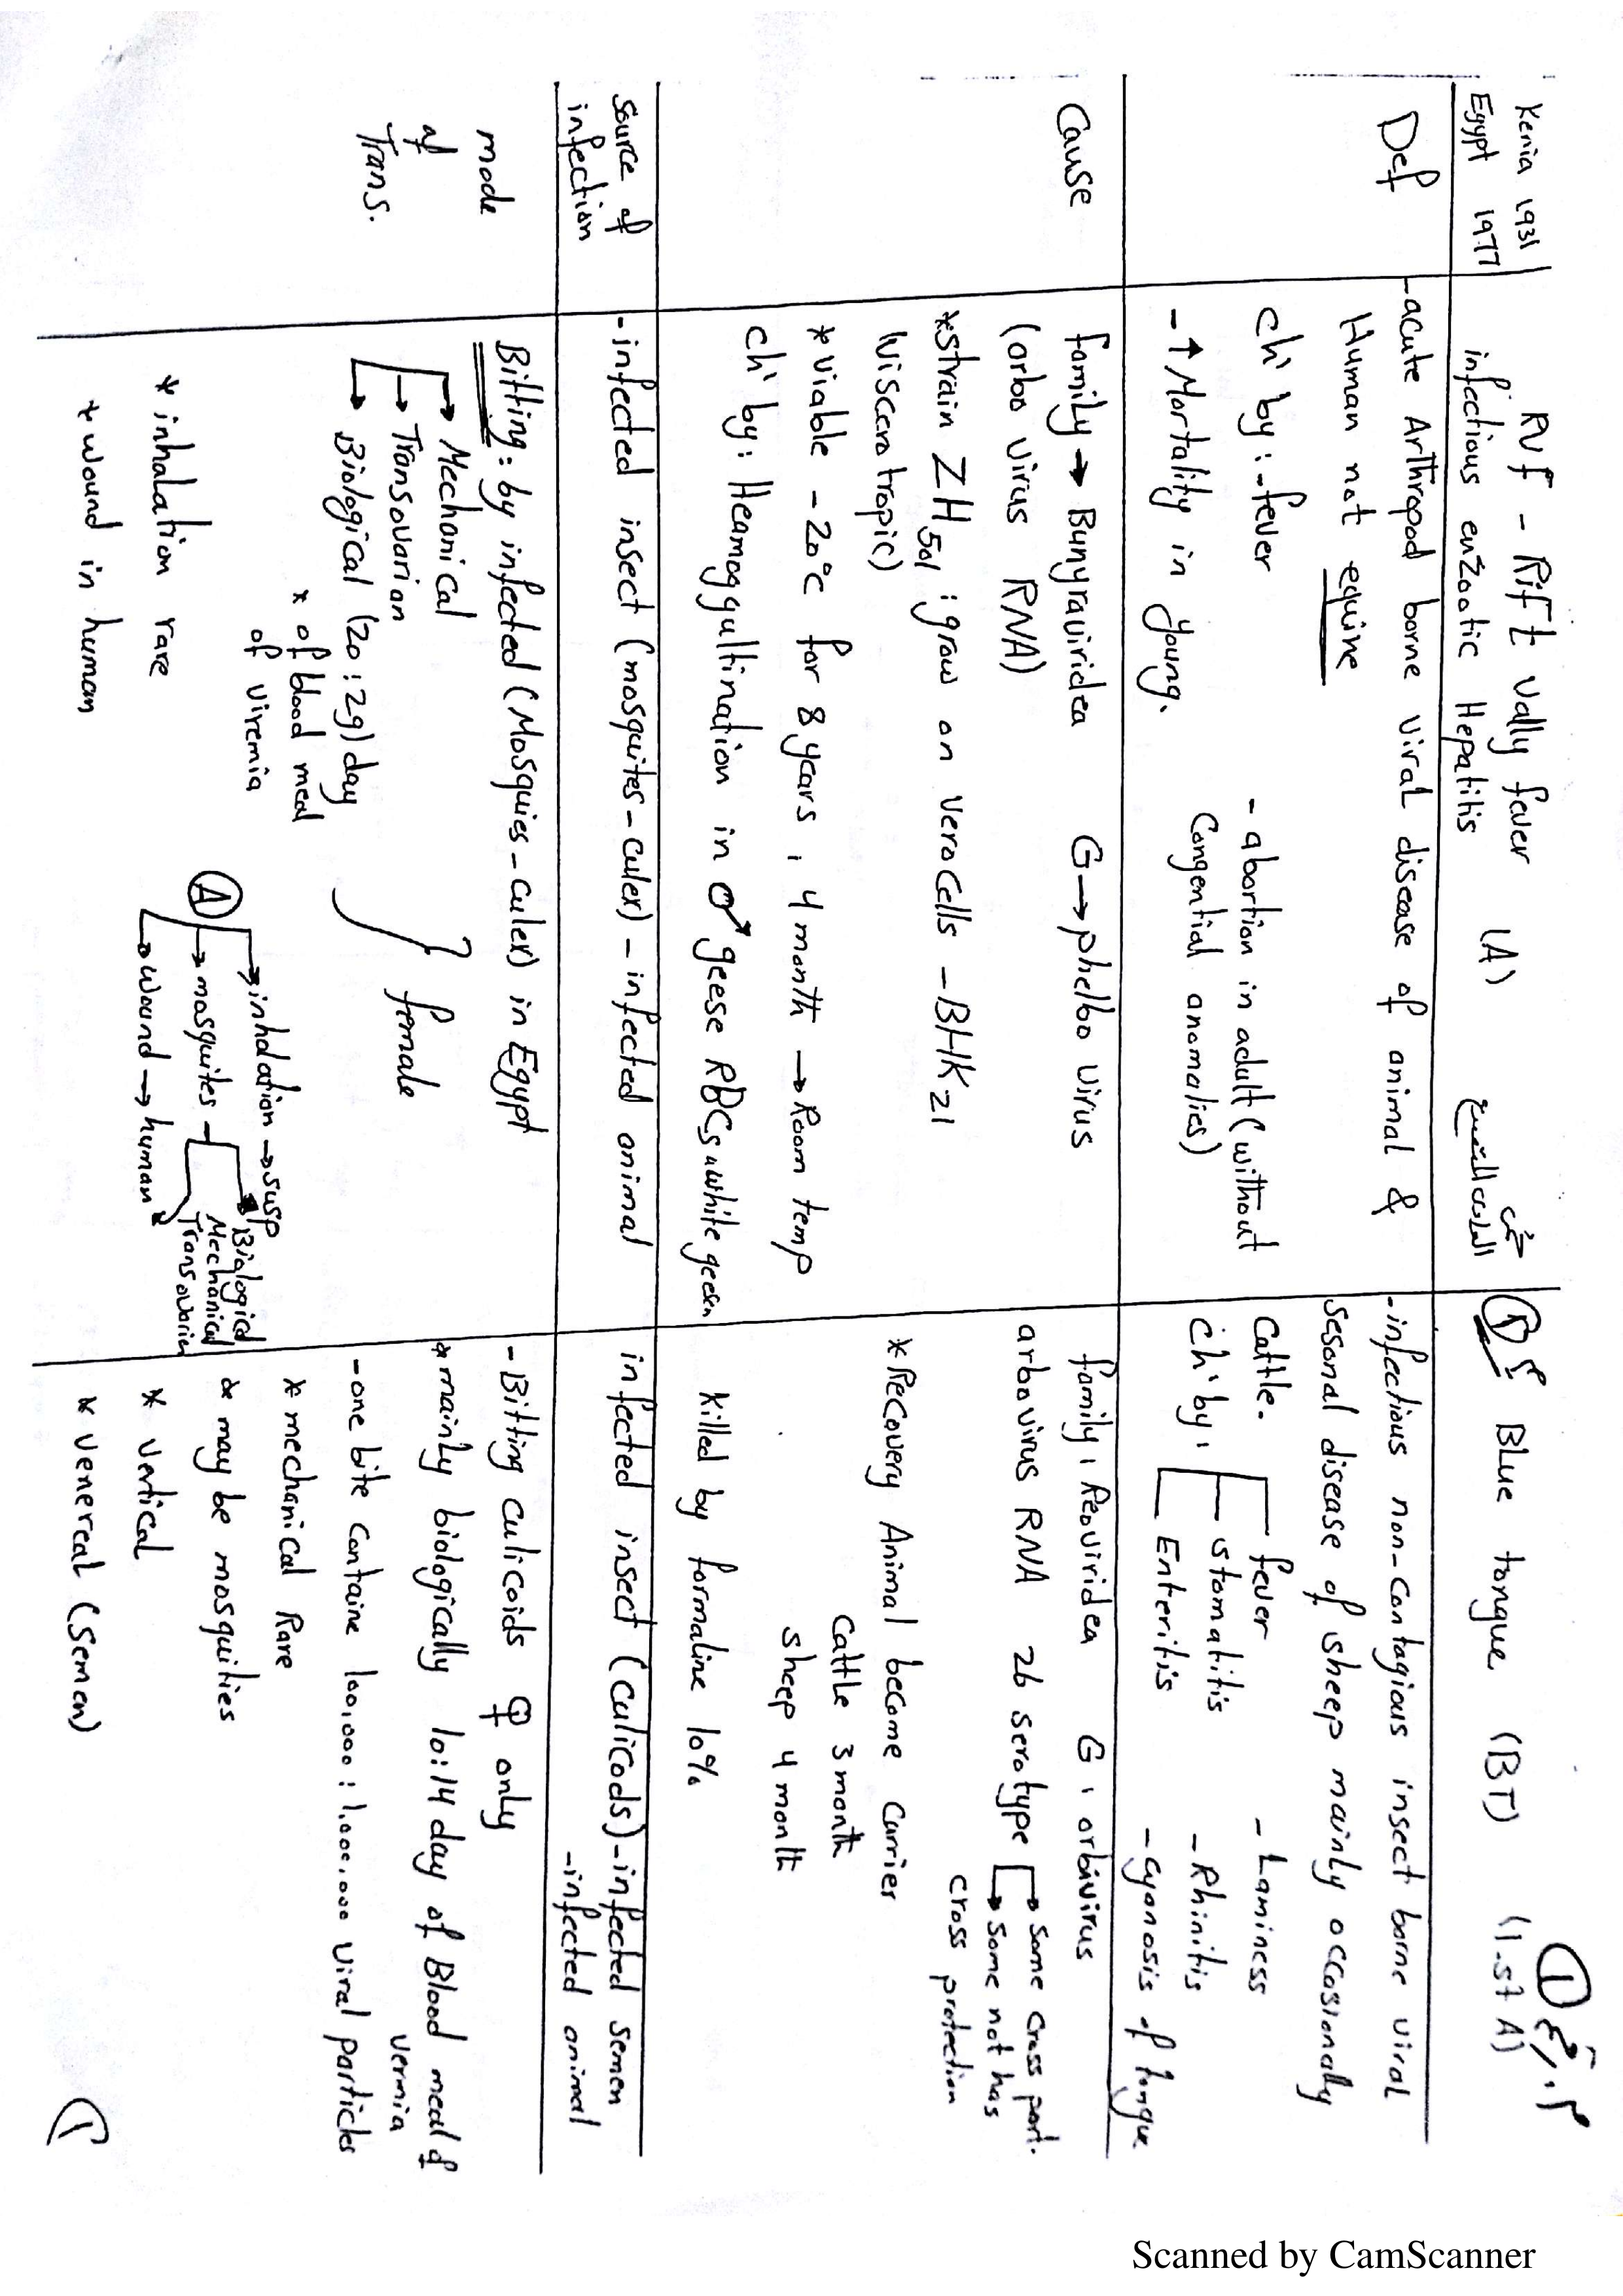 Kenia 1931
Egypt 1977
RVF - Rift Vally fever (A)
infectious enzootic Hepatitis
حمى
الوادى المتصدع
Blue tongue (BT) (1.st A)
①
Def
-acute Arthropod borne viral disease of animal &
Human not equine
ch' by: -fever
- abortion in adult (without
Congential anomalies)
- ↑ Mortality in young.
- infectious non-contagious insect borne viral
Sesonal disease of sheep mainly occasionally
Cattle.
ch' by:
fever
stomatitis
Enteritis
- Laminess
- Rhinitis
- cyanosis of tongue
Cause
family → Bunyraviridea G → phelbo virus
(arbo virus RNA)
*strain ZH501 : grow on verocells - BHK21
(viscerotropic)
* viable -20°c for 8 years , 4 month → Room temp
ch' by: Heamaggultination in ♂ geese RBCs white geesn
family: Reoviridea G: orbivirus
arbovirus RNA 26 serotype
→ some cross port.
→ some not has
cross protection
* Recovery Animal become carrier
Cattle 3 month
sheep 4 month
killed by formaline 10%
source of
infection
- infected insect (mosquites - culer) - infected animal
infected insect (culicods) - infected semen
- infected animal
mode
of
Trans.
Bitting: by infected (Mosquies - culer) in Egypt
→ Mechanical
→ Transovarion
→ Biological (20:29) day
* of blood meal
of viremia
female
* inhalation rare
* wound in human
(A)
→ inhalation → susp
→ mosquites
Biological
Mechanical
Transovarion
→ wound → human
- Bitting culicoids ♀ only
* mainly biologically 10:14 day of Blood meal of
vermia
- one bite containe 100,000 : 1.000.000 viral particles
* mechanical Rare
* may be mosquities
* vertical
* venereal (semen)
1
Scanned by CamScanner